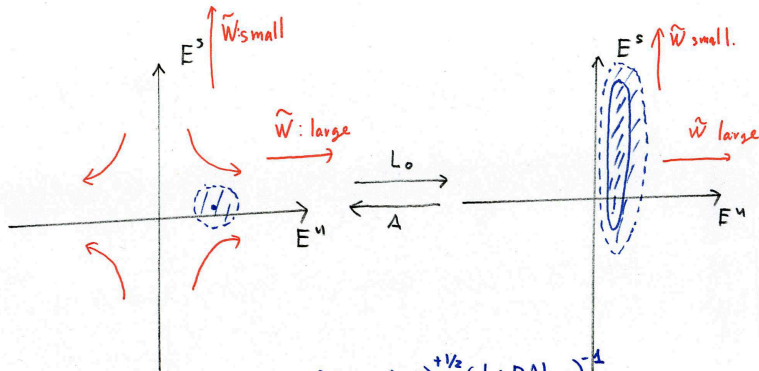 W̃: small
E^s
W̃ : large
E^u
L₀
A
E^s
W̃ small.
W̃ large
E^u